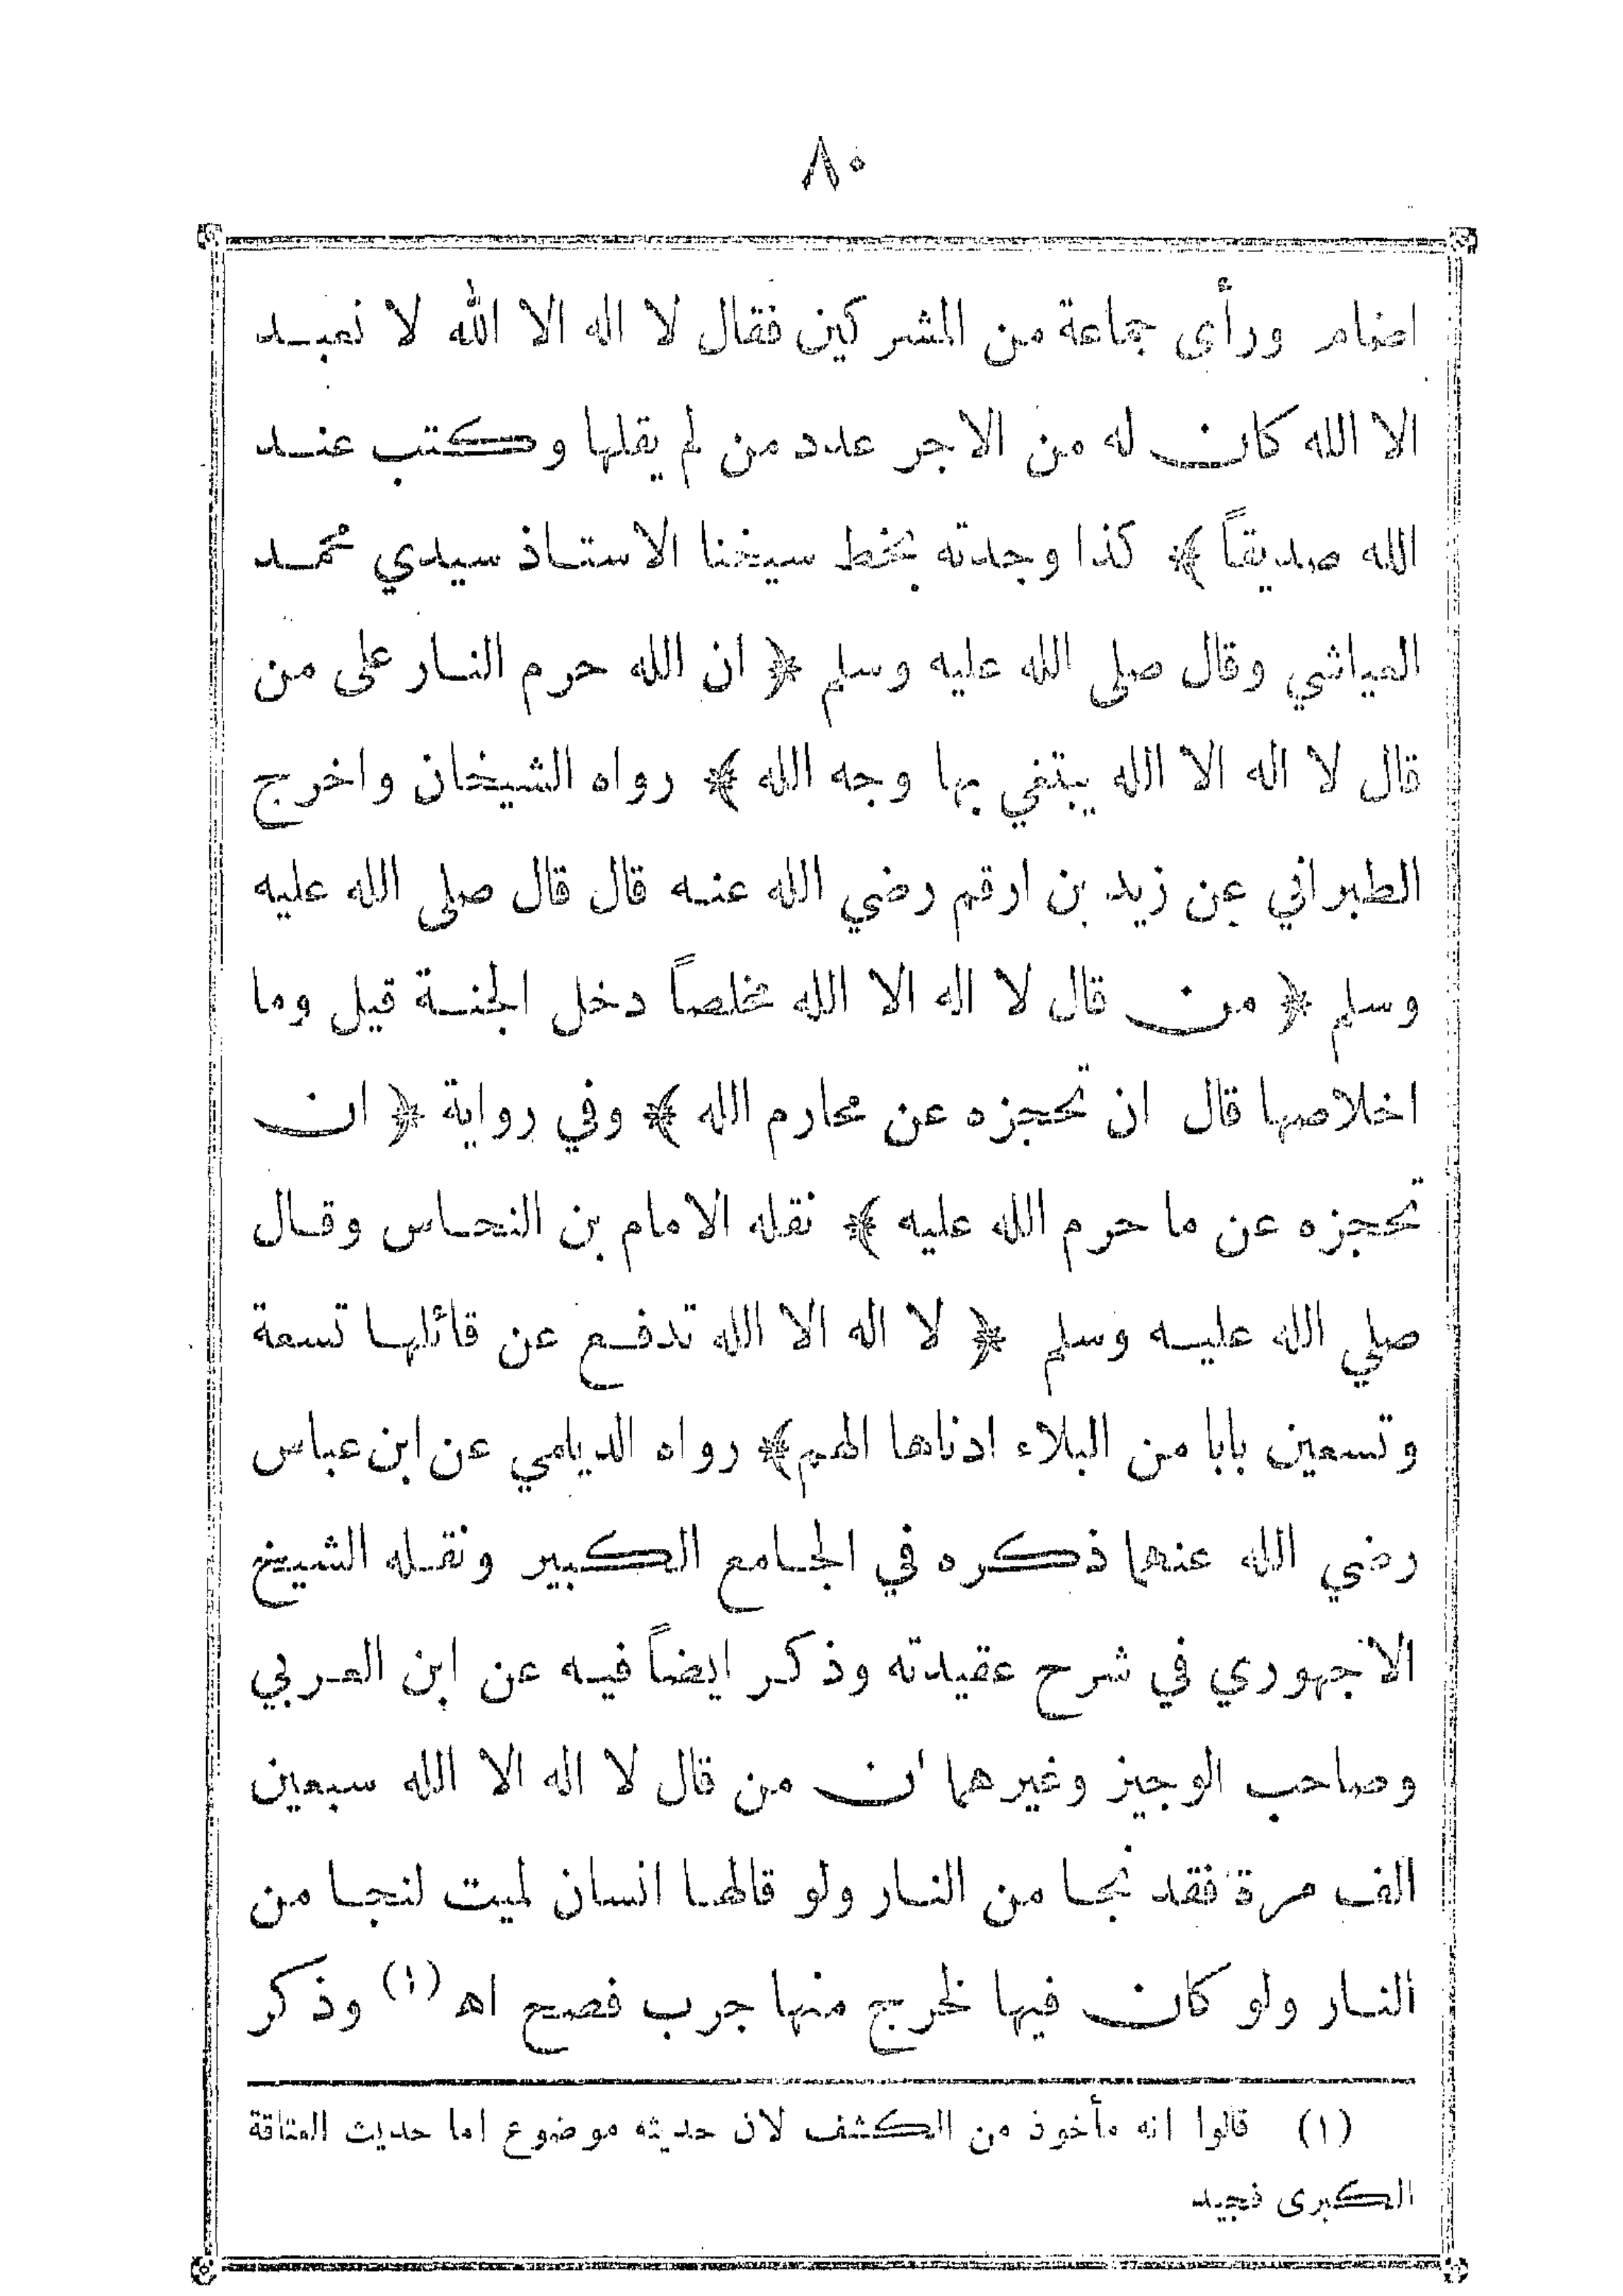 ٨٠
اضام ورأى جماعة من المشركين فقال لا اله الا الله لا نعبد
الا الله كان له من الاجر عدد من لم يقلها وكتب عند
الله صديقاً ﴾ كذا وجدته بخط سيخنا الاستاذ سيدي محمد
العياشي وقال صلى الله عليه وسلم ﴿ ان الله حرم النار على من
قال لا اله الا الله يبتغي بها وجه الله ﴾ رواه الشيخان واخرج
الطبراني عن زيد بن ارقم رضي الله عنه قال قال صلى الله عليه
وسلم ﴿ من قال لا اله الا الله مخلصاً دخل الجنة قيل وما
اخلاصها قال ان تحجزه عن محارم الله ﴾ وفي رواية ﴿ ان
تحجزه عن ما حرم الله عليه ﴾ نقله الامام بن النحاس وقال
صلي الله عليه وسلم ﴿ لا اله الا الله تدفع عن قائلها تسعة
وتسعين بابا من البلاء ادناها الهم ﴾ رواه الديلمي عن ابن عباس
رضي الله عنهما ذكره في الجامع الكبير ونقله الشيخ
الاجهوري في شرح عقيدته وذكر ايضاً فيه عن ابن العربي
وصاحب الوجيز وغيرهما ان من قال لا اله الا الله سبعين
الف مرة فقد نجا من النار ولو قالها انسان لميت لنجا من
النار ولو كان فيها لخرج منها جرب فصح اه (١) وذكر
(١) قالوا انه مأخوذ من الكشف لان حديثه موضوع اما حديث العتاقة
الكبرى فجيد